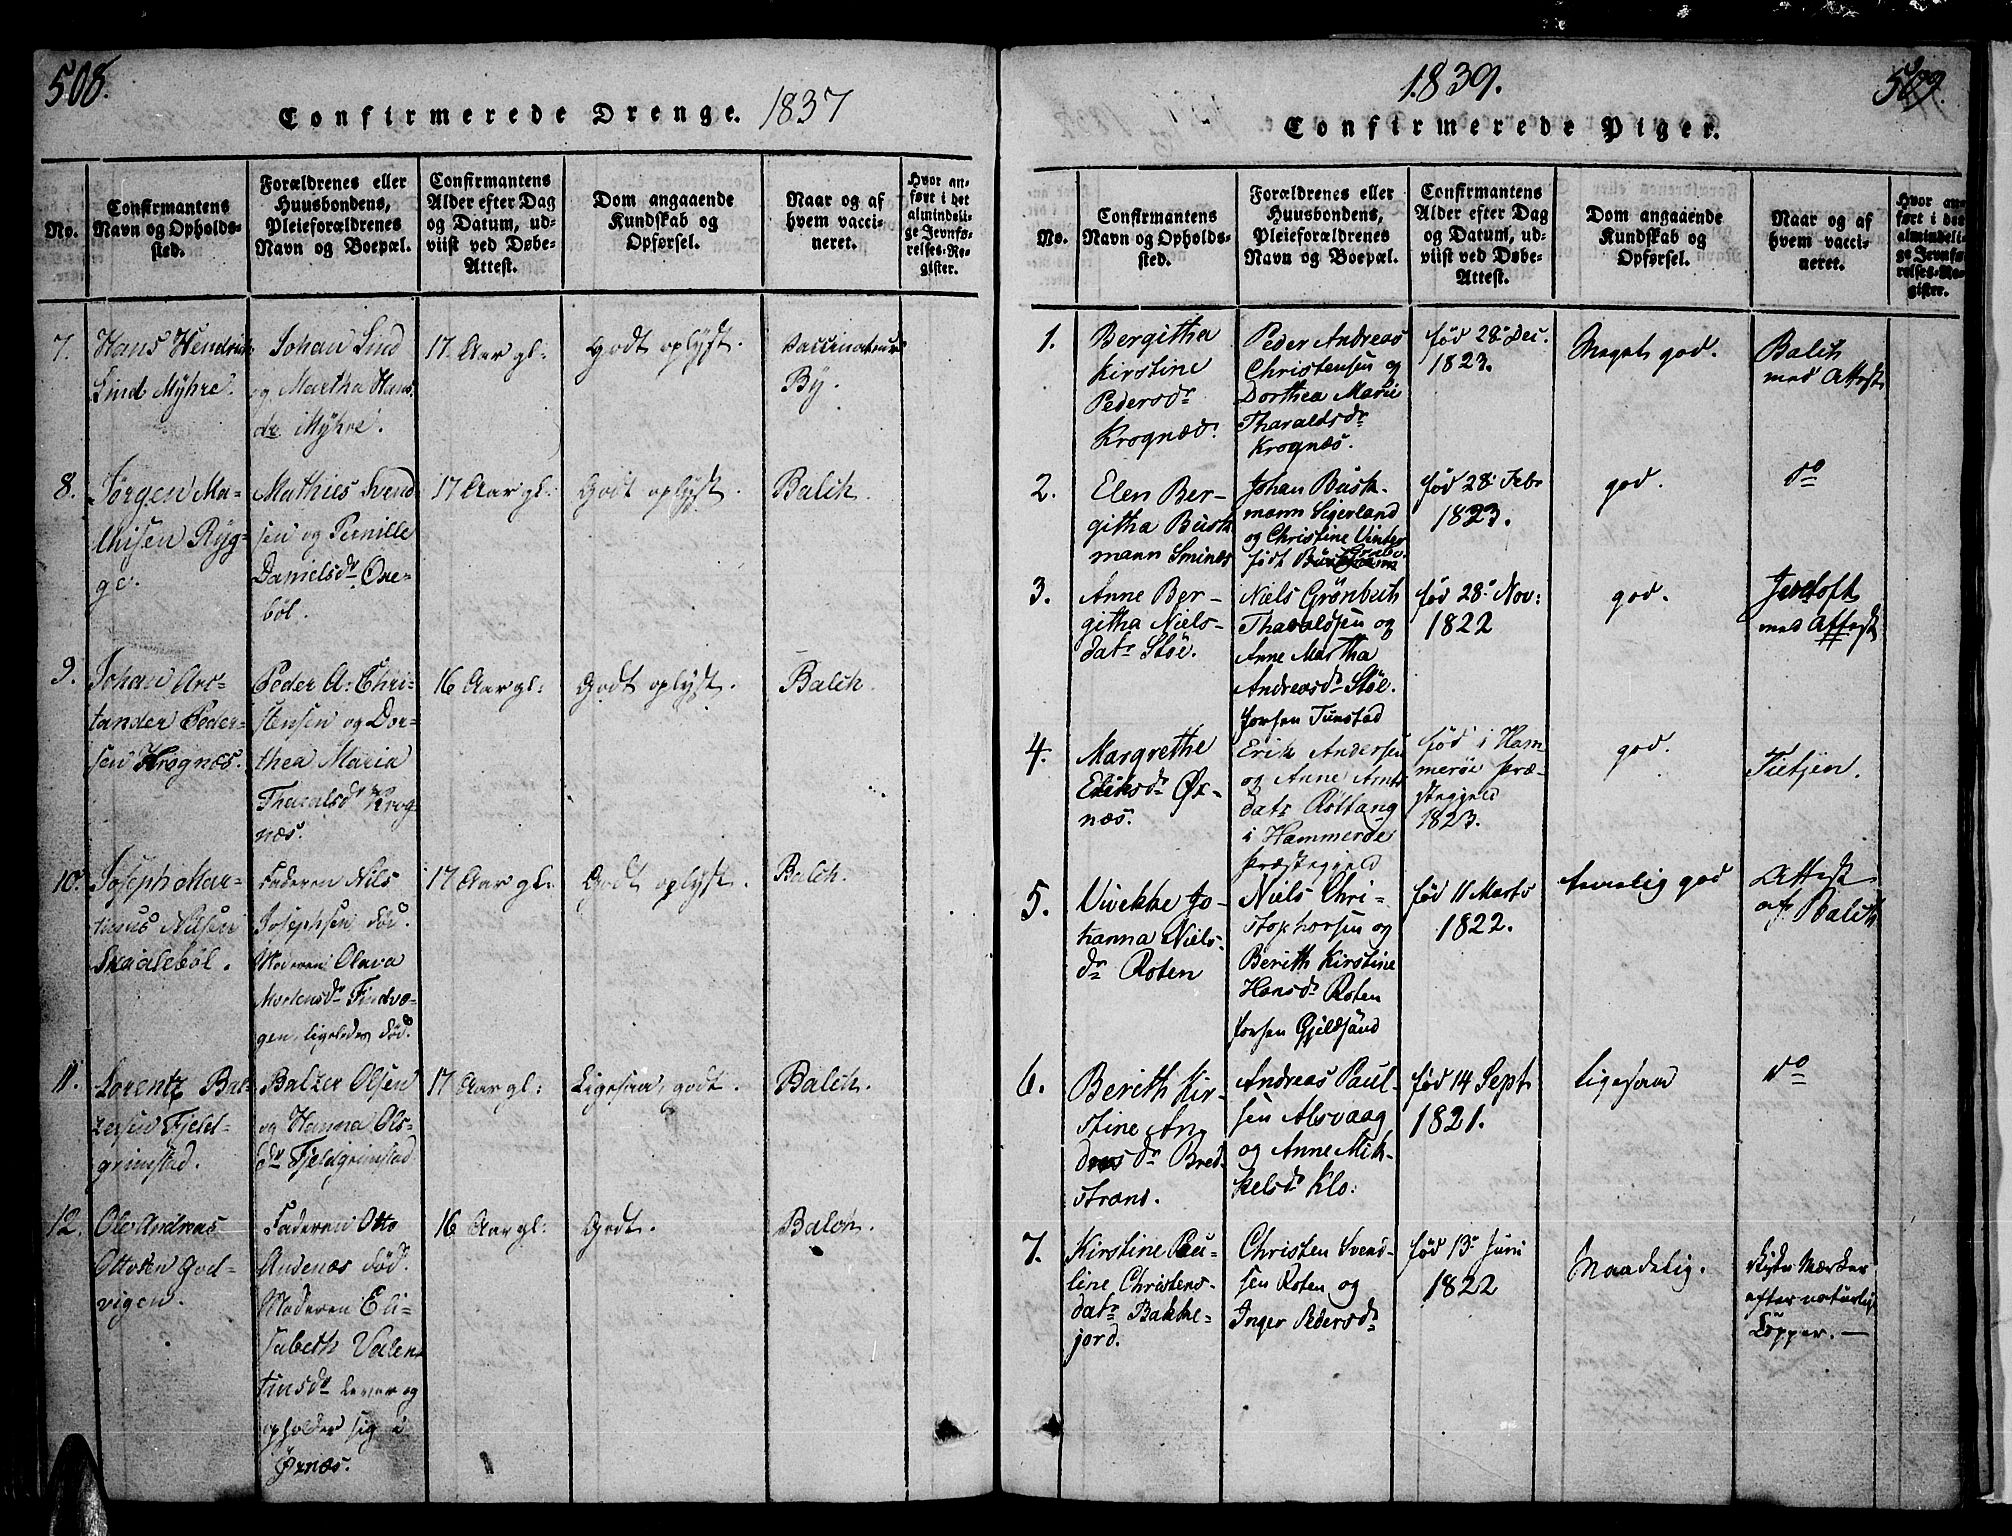 508.
Confirmerede Drenge. 1837
No.
Confirmantens
Navn og Opholds-
sted.
Forældrenes eller
Huusbondens,
Pleieforældrenes
Navn og Boepæl.
Confirmantens
Alder efter Dag
og Datum, ud-
viist ved Døbe-
Attest.
Dom angaaende
Kundskab og
Opførsel.
Naar og af
hvem vacci-
neret.
Hvor an-
ført i det
almindeli-
ge Jevnfø-
relses-Re-
gister.
7.
Hans Hendrik
Lind Myhre.
Johan Lind
og Martha Hans
dr Myhre.
17 Aar gl:
Godt oplyst.
Vaccinateur
By.
8.
Jørgen Ma-
thisen Ryg-
ge.
Mathies Svend
sen og Pernille
Danielsdr Oxe-
bøl.
17 Aar gl:
Godt oplyst.
Balch.
9.
Johan Arc-
tander Peder-
sen Krognæs.
Peder A: Chri-
stensen og Dor-
thea Maria
Tharalsdr Krog
næs.
16 Aar gl:
Godt oplyst.
Balch.
10.
Joseph Mar-
tinus Nilsen
Skaalebøl.
Faderen Nils
Josephsen død.
Moderen Olava
Mortensdr Findvo-
gen, ligeledes død.
17 Aar gl:
Godt oplyst.
Balch.
11.
Lorentz Bal-
zersen Fjeld-
grimstad.
Balzer Olsen
og Hanna Ols-
dr Fjeldgrimstad
17 Aar gl:
Ligesaa, godt.
Balch.
12.
Ole Andreas
Ottosen God-
vigen.
Faderen Otto
Andenæs død.
Moderen Eli-
sabeth Valen
tinsdr lever og
opholder sig i
Øxnæs.
16 Aar gl:
Godt.
Balch.
1839.
509.
Confirmerede Piger.
No.
Confirmantens
Navn og Opholds-
sted.
Forældrenes eller
Huusbondens,
Pleieforældrenes
Navn og Boepæl.
Confirmantens
Alder efter Dag
og Datum, ud-
viist ved Døbe-
Attest.
Dom angaaende
Kundskab og
Opførsel.
Naar og af
hvem vacci-
neret.
Hvor an-
ført i det
almindeli-
ge Jevnfø-
relses-Re-
gister.
1.
Bergitha
Kirstine
Pedersdr
Krognæs.
Peder Andreas
Christensen og
Dorthea Marie
Tharaldsdr
Krognæs.
fød 28 Dec.
1823.
Meget god.
Balch
med Attest
2.
Elen Ber-
githa Busk
mann Smines
Johan Busk-
mann Sigerland
og Christine Vinter
født
fød 28 Febr
1823.
god.
do
3.
Anne Ber-
githa Niels-
datr Støe.
Niels Grønbech
Tharaldsen og
Anne Martha
Andreasdr Støe.
Forsen Tunstad
fød 28 Nov:
1822
god.
Jentoft
med Attest
4.
Margrethe
Eriksdr Øx-
næs.
Erik Andersen
og Anne Arnts
datr Røttang
i Hammerøe
Præstegjeld
fød i Ham
merøe Præ-
stegjeld
1823.
god.
Tietjen.
5.
Vivekke Jo-
hanna Niels-
dr Roten
Niels Chri-
stophersen og
Berith Kirstine
Hansdr Roten
Forsen Gjeldsund
fød 11 Marts
1822.
temmelig god
Attest
af Balch
6.
Berith Kir-
stine An
dreasdr Bred-
strand.
Andreas Paul-
sen Alsvaag
og Anne Mik-
kelsdr Klo:
fød 14 Sept
1821.
Ligesaa
do
7.
Kirstine Pau-
line Christens-
datr Bakke-
jord.
Christen Svend-
sen Roten og
Inger Pedersdr
fød 13 Juni
1822
Maadelig.
Mærker
efter naturlig
Kopper.